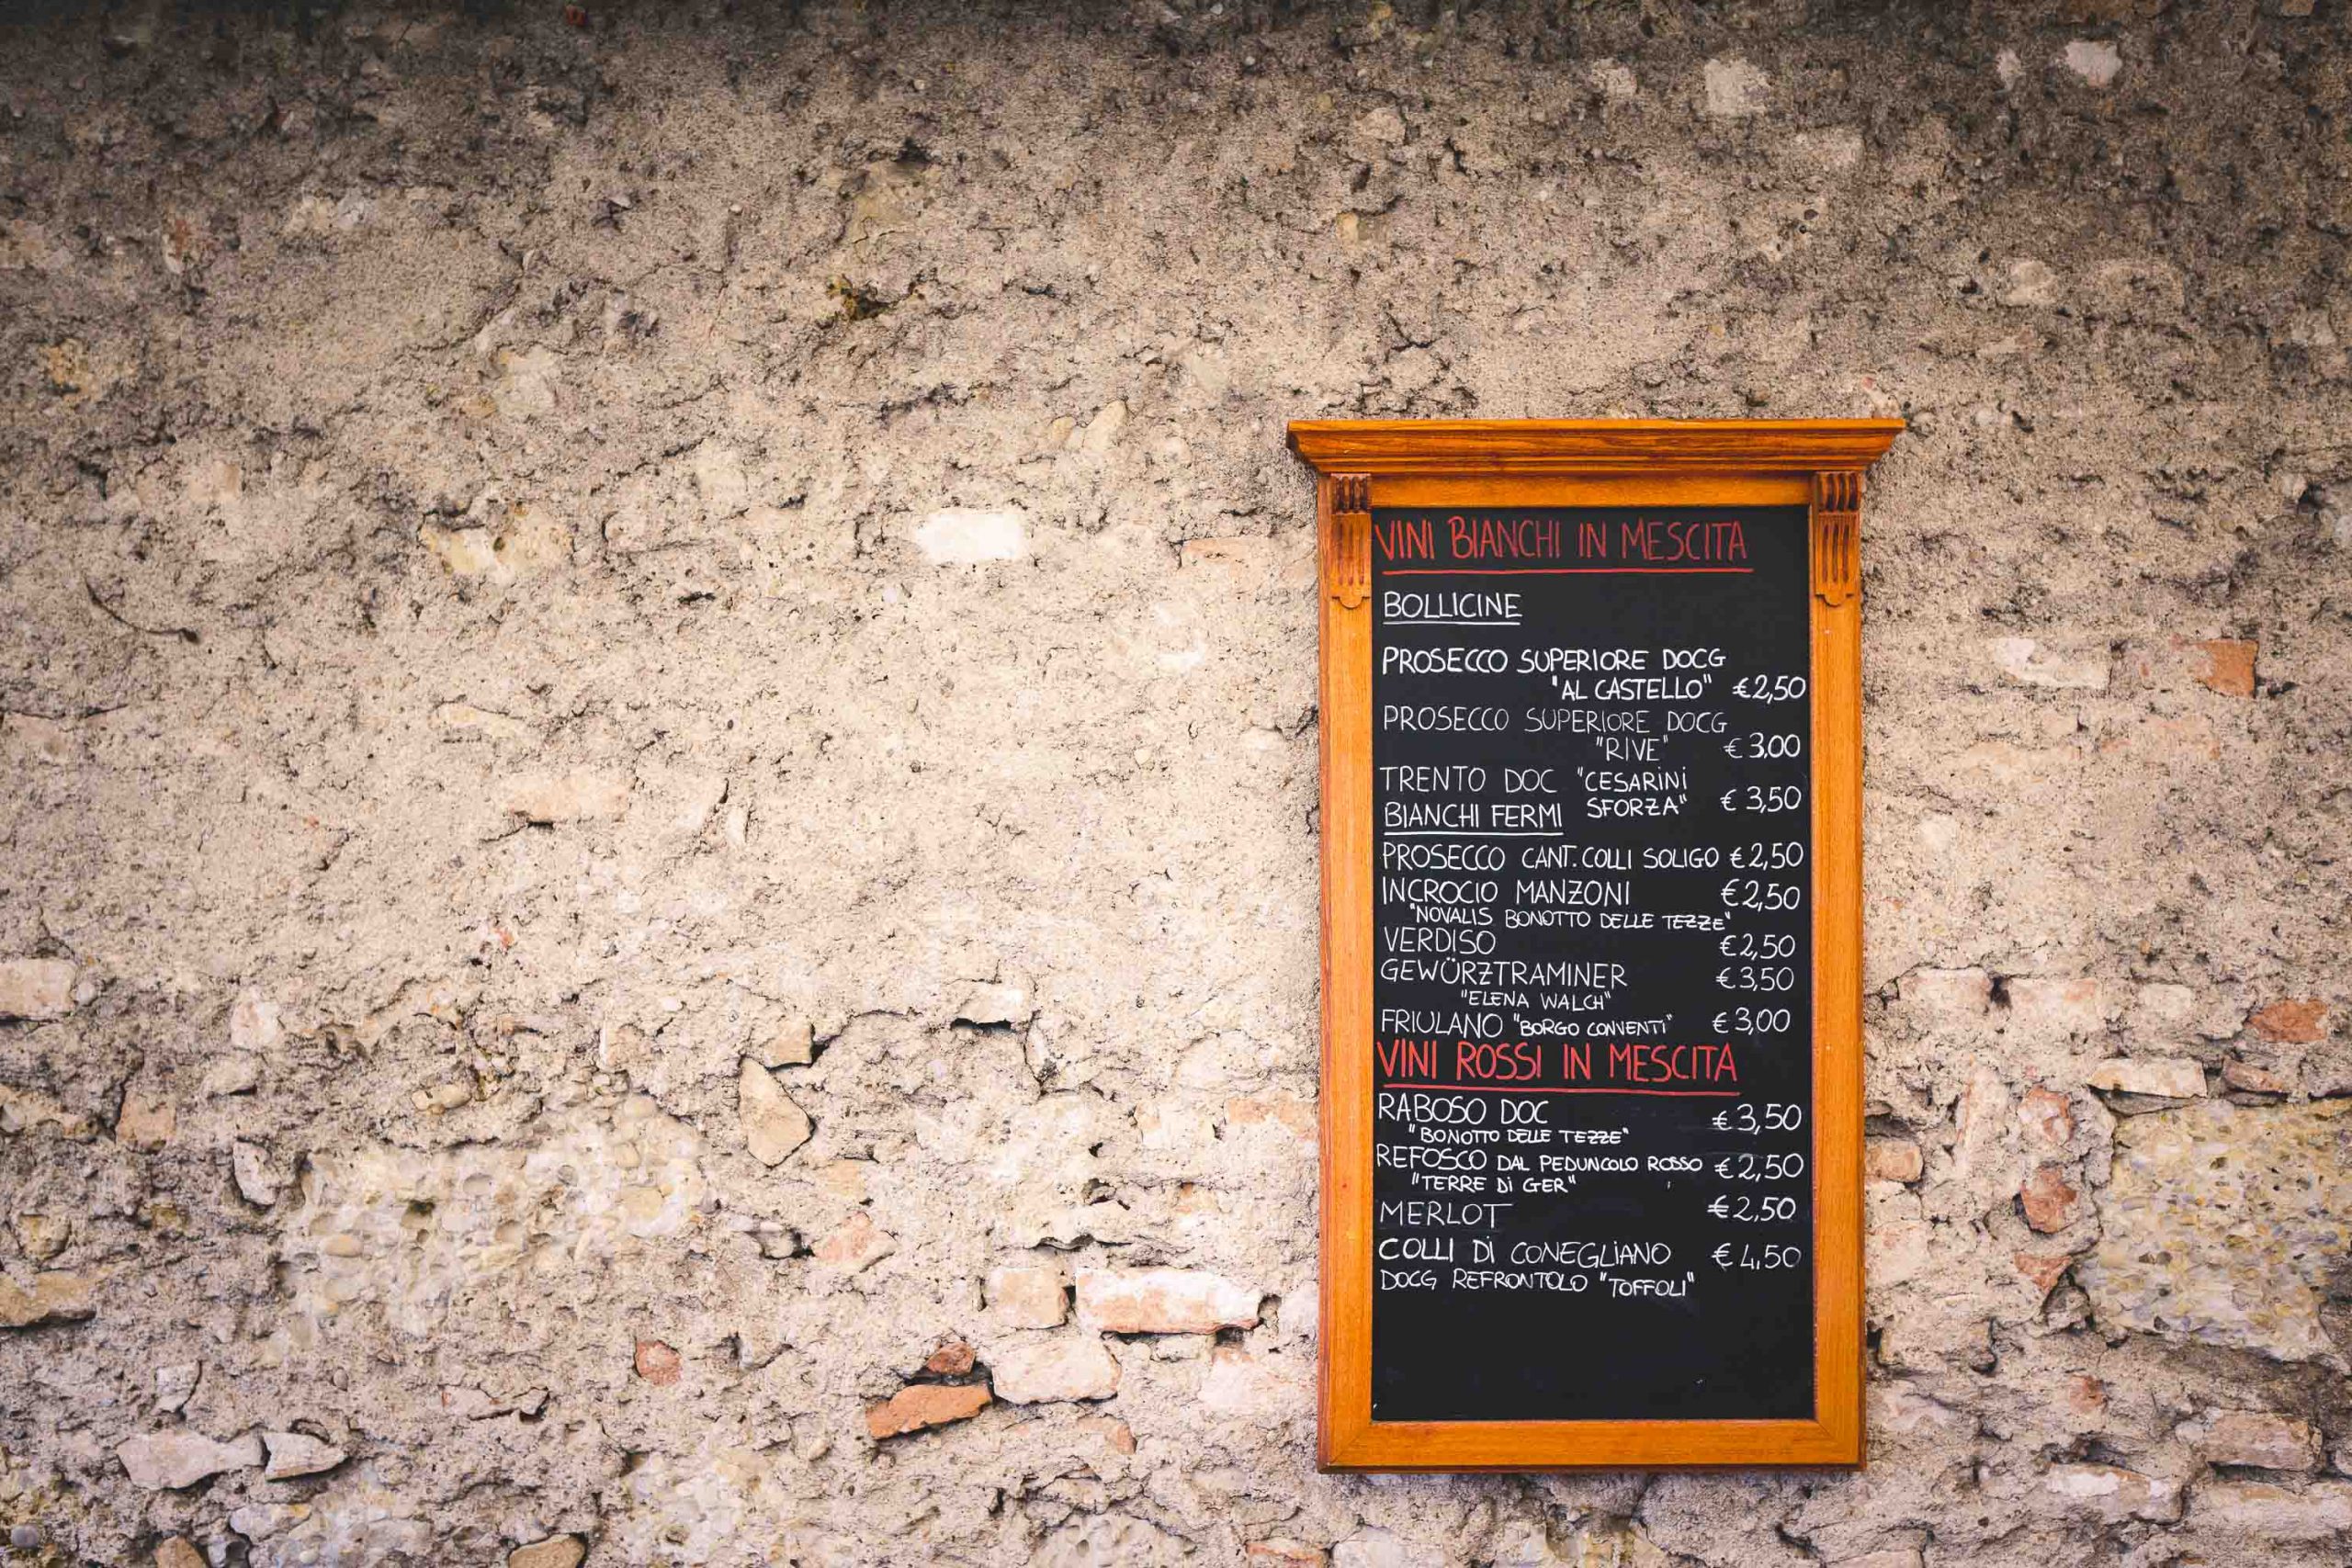 VINI BIANCHI IN MESCITA
BOLLICINE
PROSECCO SUPERIORE DOCG
"AL CASTELLO" €2,50
PROSECCO SUPERIORE DOCG
"RIVE" €3,00
TRENTO DOC "CESARINI
SFORZA" € 3,50
BIANCHI FERMI
PROSECCO CANT. COLLI SOLIGO €2,50
INCROCIO MANZONI €2,50
"NOVALIS BONOTTO DELLE TEZZE"
VERDISO €2,50
GEWÜRZTRAMINER €3,50
"ELENA WALCH"
FRIULANO "BORGO CONVENTI" €3,00
VINI ROSSI IN MESCITA
RABOSO DOC €3,50
"BONOTTO DELLE TEZZE"
REFOSCO DAL PEDUNCOLO ROSSO €2,50
"TERRE Di GER"
MERLOT €2,50
COLLI Di CONEGLiANO €4,50
DOCG REFRONTOLO "TOFFOLI"